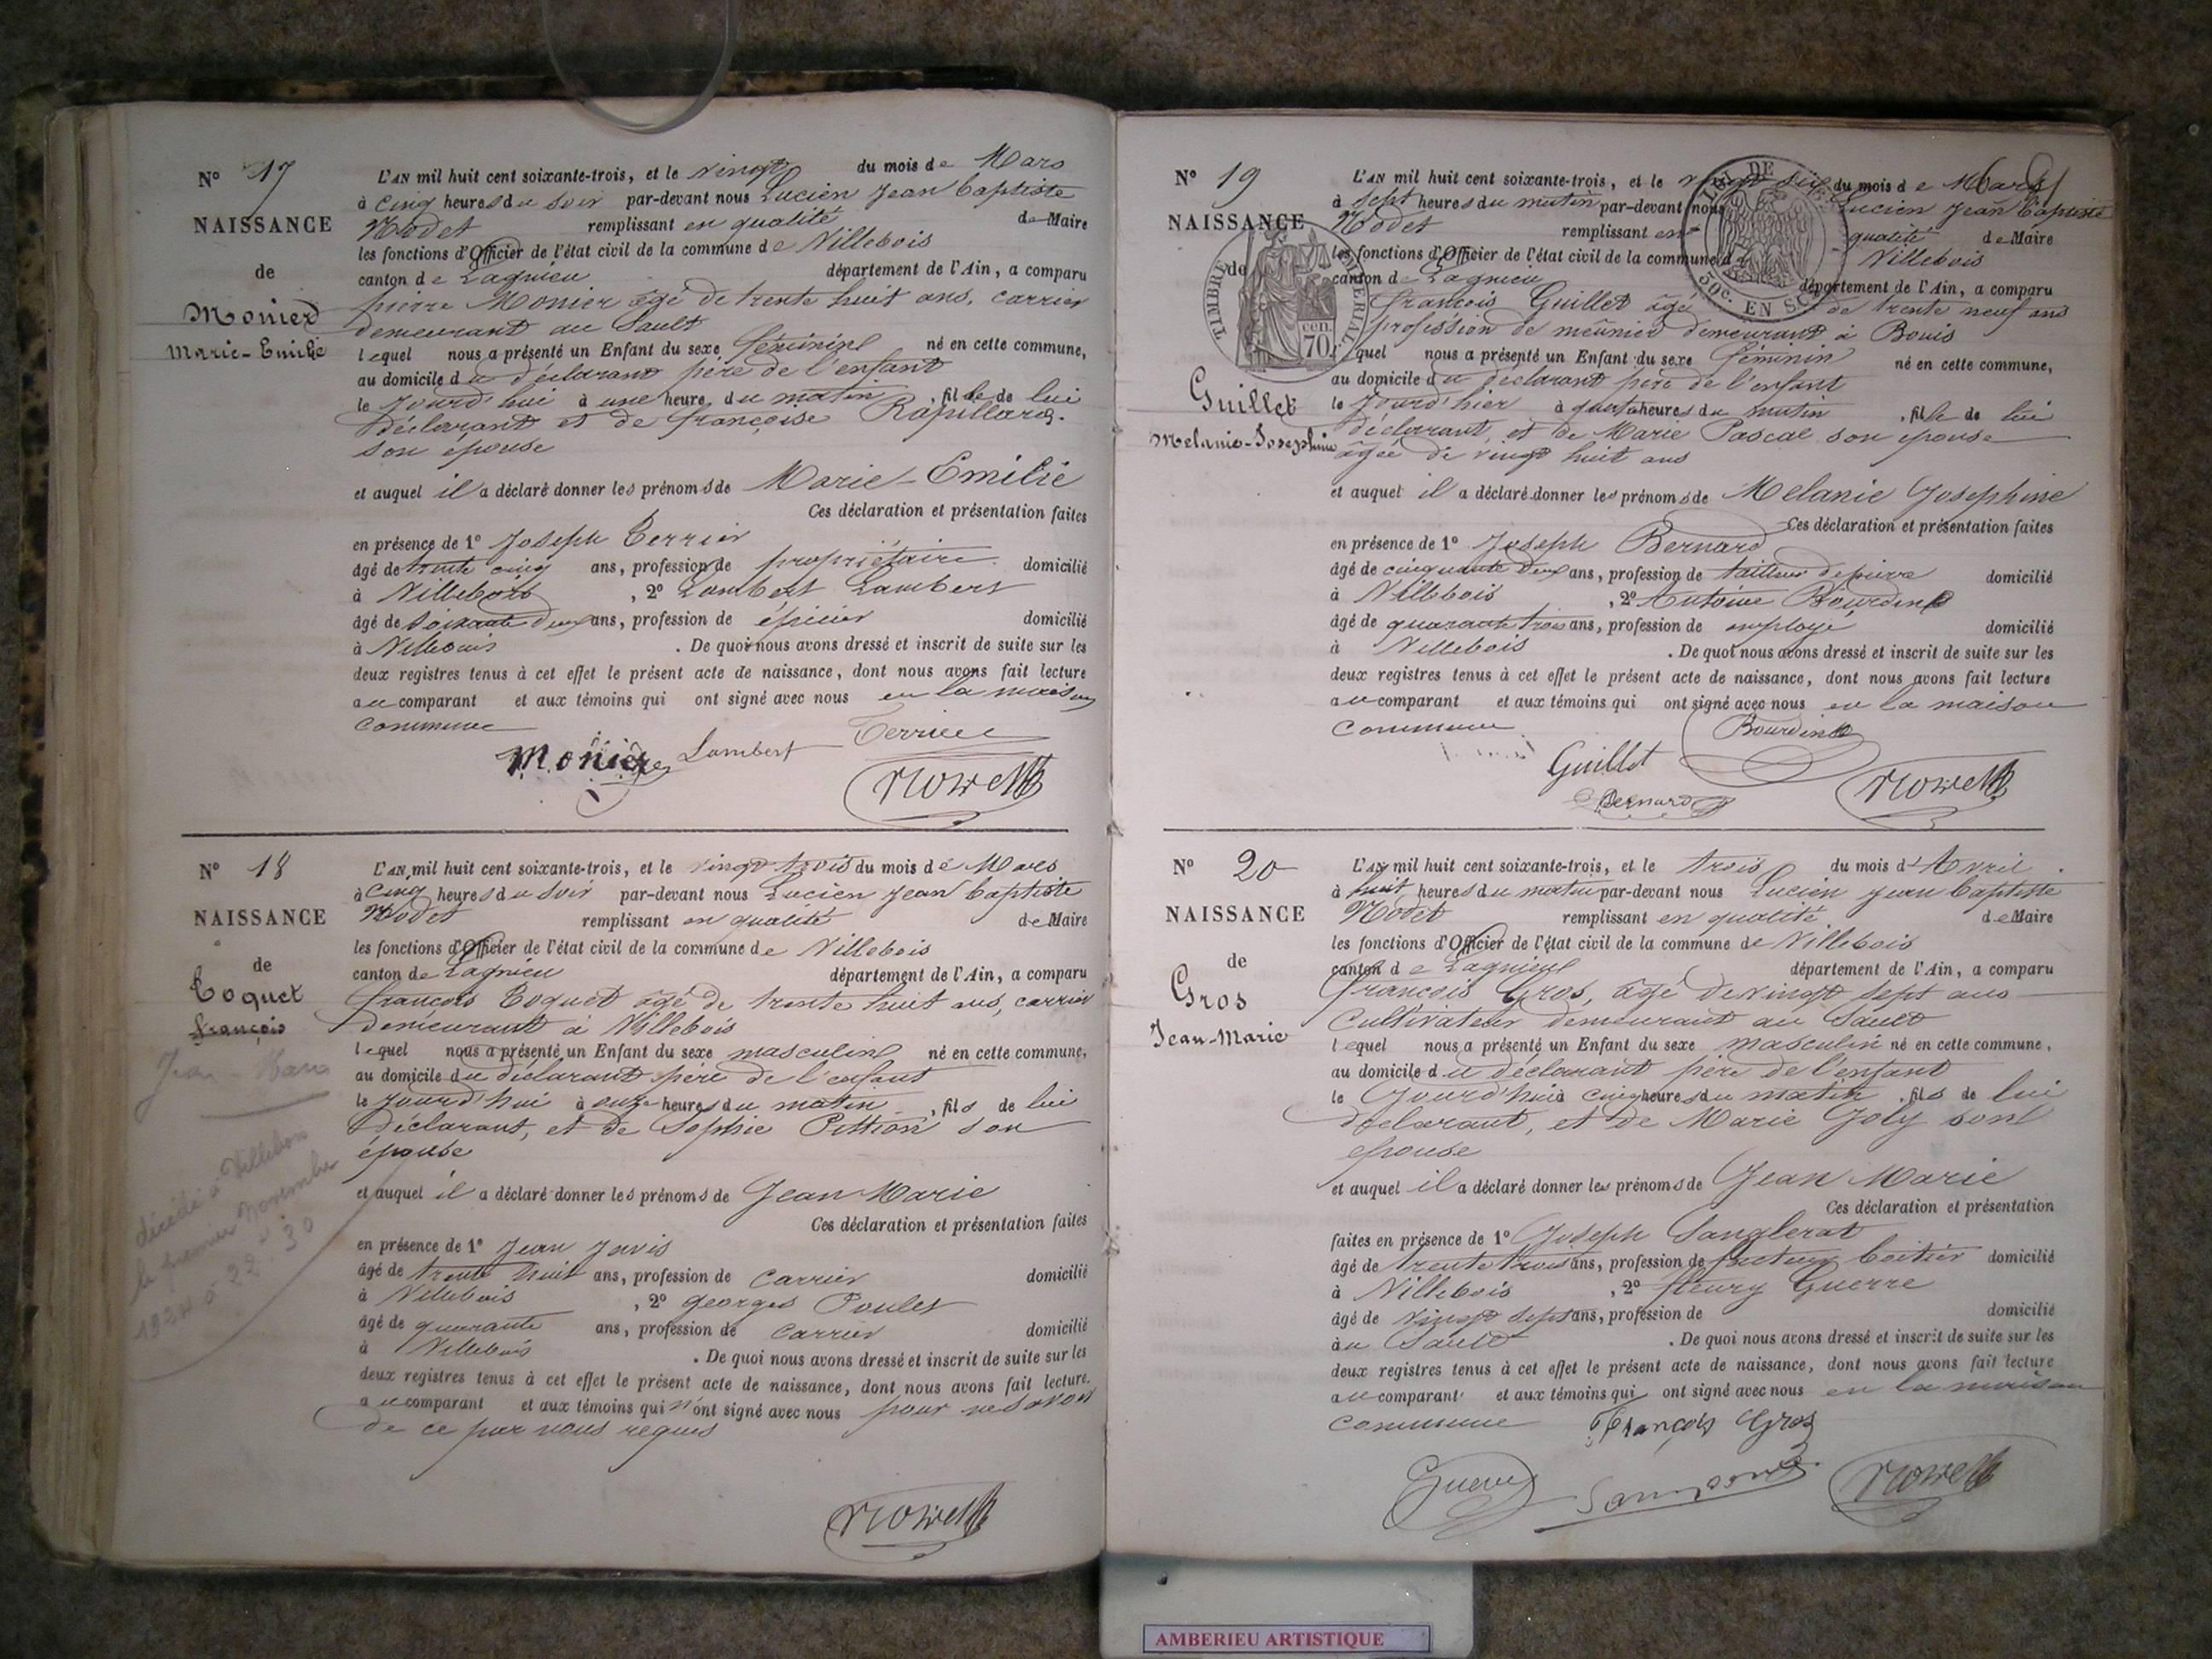 N° 17
NAISSANCE
de
Monier
Marie-Emilie
L'AN mil huit cent soixante-trois, et le vingt du mois de Mars
à cinq heures du soir par-devant nous Lucien Jean Baptiste
Nodet remplissant en qualité de Maire
les fonctions d'Officier de l'état civil de la commune de Villebois
canton de Lagnieu département de l'Ain, a comparu
pierre Monier âgé de trente huit ans, carrier
demeurant au Sault
lequel nous a présenté un Enfant du sexe féminin né en cette commune,
au domicile du déclarant père de l'enfant
le jourd'hui à une heure du matin, fille de lui
déclarant et de françoise Rapillard
son épouse
et auquel il a déclaré donner les prénoms de Marie-Emilie
Ces déclaration et présentation faites
en présence de 1° Joseph Terrier
âgé de trente cinq ans, profession de propriétaire domicilié
à Villebois, 2° Lambert Lambert
âgé de soixante deux ans, profession de épicier domicilié
à Villebois. De quoi nous avons dressé et inscrit de suite sur les
deux registres tenus à cet effet le présent acte de naissance, dont nous avons fait lecture
au comparant et aux témoins qui ont signé avec nous en la maison
commune
Monier Lambert Terrier
N° 18
NAISSANCE
de
Toquet
françois
Jean-Marie
décédé à Villebois
le premier Novembre
1924 à 22 h 30
L'AN mil huit cent soixante-trois, et le vingt trois du mois de Mars
à cinq heures du soir par-devant nous Lucien Jean Baptiste
Nodet remplissant en qualité de Maire
les fonctions d'Officier de l'état civil de la commune de Villebois
canton de Lagnieu département de l'Ain, a comparu
françois Toquet âgé de trente huit ans, carrier
demeurant à Villebois
lequel nous a présenté un Enfant du sexe masculin né en cette commune,
au domicile du déclarant père de l'enfant
le jourd'hui à onze heures du matin, fils de lui
déclarant, et de Sophie Pittion son
épouse
et auquel il a déclaré donner les prénoms de Jean Marie
Ces déclaration et présentation faites
en présence de 1° Jean Javis
âgé de trente huit ans, profession de carrier domicilié
à Villebois, 2° georges Poulet
âgé de quarante ans, profession de carrier domicilié
à Villebois. De quoi nous avons dressé et inscrit de suite sur les
deux registres tenus à cet effet le présent acte de naissance, dont nous avons fait lecture
au comparant et aux témoins qui n'ont signé avec nous pour ne savoir
de ce par nous requis
N° 19
NAISSANCE
de
TIMBRE IMPÉRIAL
70 cen.
50c. EN SUS
Guillet
Melanie-Josephine
L'AN mil huit cent soixante-trois, et le vingt six du mois de Mars
à sept heures du matin par-devant nous Lucien Jean Baptiste
Nodet remplissant en qualité de Maire
les fonctions d'Officier de l'état civil de la commune de Villebois
canton de Lagnieu département de l'Ain, a comparu
françois Guillet âgé de trente neuf ans
profession de meûnier demeurant à Bouis
lequel nous a présenté un Enfant du sexe féminin né en cette commune,
au domicile du déclarant père de l'enfant
le jourd'hier à quatre heures du matin, fille de lui
déclarant, et de Marie Pascal son épouse
âgée de vingt huit ans
et auquel il a déclaré donner les prénoms de Melanie Josephine
Ces déclaration et présentation faites
en présence de 1° Joseph Bernard
âgé de cinquante deux ans, profession de tailleur de pierre domicilié
à Villebois, 2° Antoine Bourdin
âgé de quarante trois ans, profession de employé domicilié
à Villebois. De quoi nous avons dressé et inscrit de suite sur les
deux registres tenus à cet effet le présent acte de naissance, dont nous avons fait lecture
au comparant et aux témoins qui ont signé avec nous en la maison
commune Bourdin
Guillet
Bernard
N° 20
NAISSANCE
de
Gros
Jean-Marie
L'AN mil huit cent soixante-trois, et le trois du mois d'Avril
à huit heures du matin par-devant nous Lucien Jean Baptiste
Nodet remplissant en qualité de Maire
les fonctions d'Officier de l'état civil de la commune de Villebois
canton de Lagnieu département de l'Ain, a comparu
françois Gros, âgé de vingt sept ans
cultivateur demeurant au Sault
lequel nous a présenté un Enfant du sexe masculin né en cette commune,
au domicile du déclarant père de l'enfant
le jourd'hui à cinq heures du matin, fils de lui
déclarant, et de Marie Joly son
épouse
et auquel il a déclaré donner les prénoms de Jean Marie
Ces déclaration et présentation
faites en présence de 1° Joseph Sanglerat
âgé de trente trois ans, profession de facteur boitier domicilié
à Villebois, 2° fleury Guerre
âgé de vingt sept ans, profession de domicilié
au Sault. De quoi nous avons dressé et inscrit de suite sur les
deux registres tenus à cet effet le présent acte de naissance, dont nous avons fait lecture
au comparant et aux témoins qui ont signé avec nous en la maison
commune François Gros
Guerre
AMBERIEU ARTISTIQUE